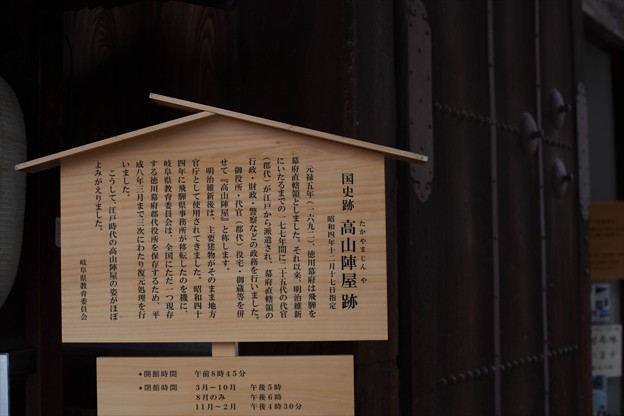 国史跡 高山陣屋跡
たかやまじんや
昭和四年十二月十七日指定
元禄五年(一六九二)、徳川幕府は飛騨を
幕府直轄領としました。それ以来、明治維新
にいたるまでの一七七年間に二十五代の代官
(郡代)が江戸から派遣され、幕府直轄領の
行政・財政・警察などの政務を行いました。
御役所・代官(郡代)役宅・御蔵等を併
せて『高山陣屋』と称します。
明治維新後は、主要建物がそのまま地方
官庁として使用されてきました。昭和四十
四年に飛騨県事務所が移転したのを機に、
岐阜県教育委員会は、全国にただ一つ現存
する徳川幕府郡代役所を保存するため、平
成八年三月まで三次にわたり復元処理を行
いました。
こうして、江戸時代の高山陣屋の姿がほぼ
よみがえりました。
岐阜県教育委員会
•開館時間 午前8時45分
•閉館時間 3月〜10月 午後5時
8月のみ 午後6時
11月〜2月 午後4時30分